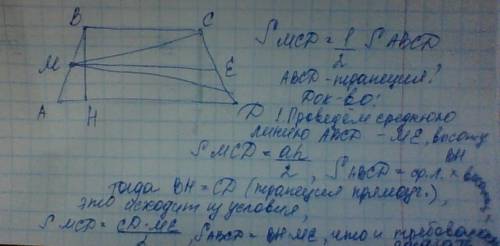 B
C
M
E
A
H
D
SMCD = 1/2 SABCD
ABCD - трапеция?
Док-во:
1 Проведем среднюю
линию ABCD - ME, высоту
BH
SMCD = ah/2, SABCD = ср.л. × высоту,
тогда BH = CD (трапеция прямоуг.),
это исходит из условия,
SMCD = CD·ME/2, SABCD = BH·ME, что и требовалось